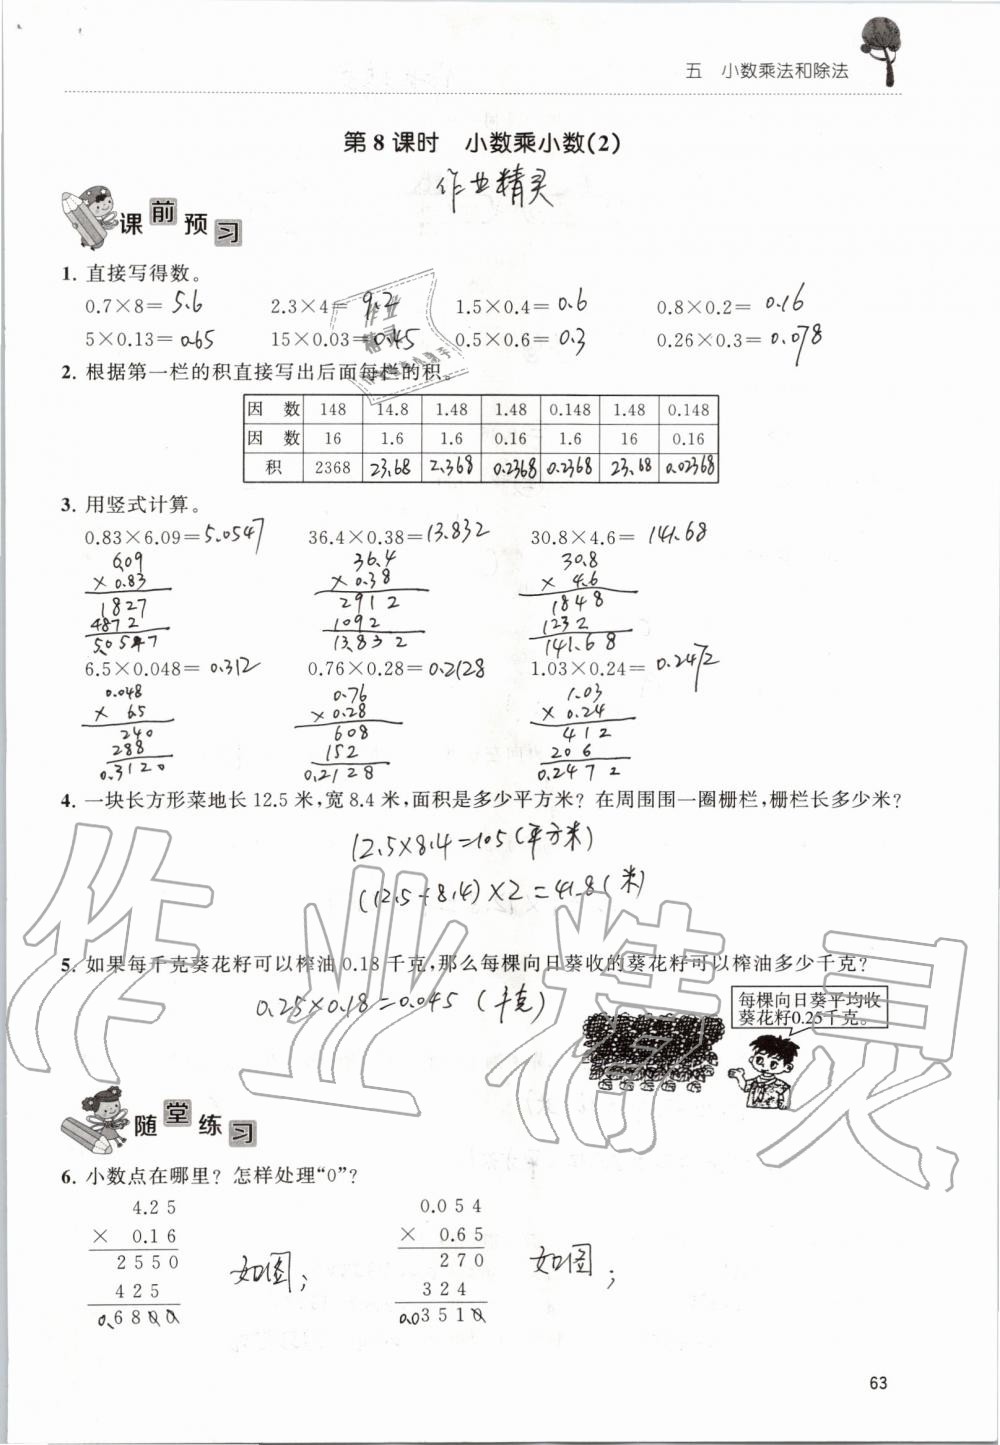 五 小数乘法和除法
第8课时 小数乘小数(2)
作业精灵
课前预习
1. 直接写得数。
0.7×8= 5.6 2.3×4= 9.2 1.5×0.4= 0.6 0.8×0.2= 0.16
5×0.13= 0.65 15×0.03= 0.45 0.5×0.6= 0.3 0.26×0.3= 0.078
2. 根据第一栏的积直接写出后面每栏的积。
因 数 148 14.8 1.48 1.48 0.148 1.48 0.148
因 数 16 1.6 1.6 0.16 1.6 16 0.16
积 2368 23.68 2.368 0.2368 0.2368 23.68 0.02368
3. 用竖式计算。
0.83×6.09= 5.0547 36.4×0.38= 13.832 30.8×4.6= 141.68
6.09 36.4 30.8
× 0.83 × 0.38 × 4.6
1827 2912 1848
4872 1092 1232
5.0547 13.832 141.68
6.5×0.048= 0.312 0.76×0.28= 0.2128 1.03×0.24= 0.2472
0.048 0.76 1.03
× 6.5 × 0.28 × 0.24
240 608 412
288 152 206
0.3120 0.2128 0.2472
4. 一块长方形菜地长12.5米,宽8.4米,面积是多少平方米? 在周围围一圈栅栏,栅栏长多少米?
12.5×8.4=105(平方米)
(12.5+8.4)×2=41.8(米)
5. 如果每千克葵花籽可以榨油0.18千克,那么每棵向日葵收的葵花籽可以榨油多少千克?
0.25×0.18=0.045 (千克)
每棵向日葵平均收
葵花籽0.25千克。
随堂练习
6. 小数点在哪里? 怎样处理“0”?
4.25 0.054
× 0.16 × 0.65
2550 270
425 324
0.6800 0.03510
如图; 如图;
63
作业精灵